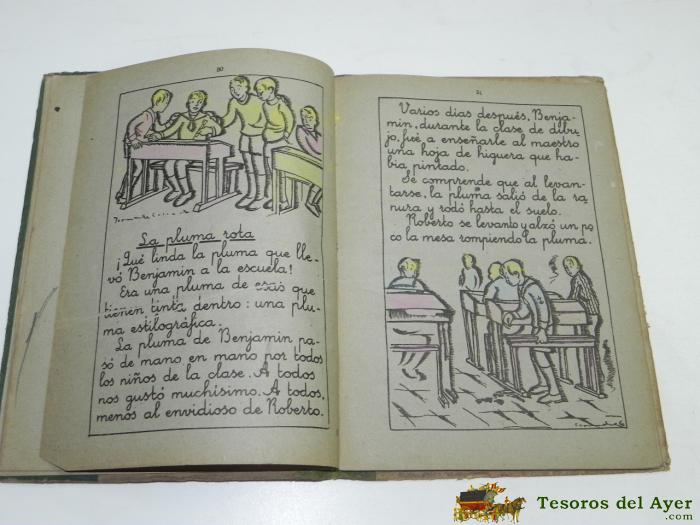 80
La pluma rota
¡Qué linda la pluma que lle-
vó Benjamín a la escuela!
Era una pluma de esas que
tienen tinta dentro: una plu-
ma estilográfica.
La pluma de Benjamín pa-
só de mano en mano por todos
los niños de la clase. A todos
nos gustó muchísimo. A todos,
menos al envidioso de Roberto.
81
Varios días después, Benja-
mín, durante la clase de dibu-
jo, fué a enseñarle al maestro
una hoja de higuera que ha-
bía pintado.
Se comprende que al levan-
tarse, la pluma salió de la ra
nura y rodó hasta el suelo.
Roberto se levanto y alzó un po
co la mesa rompiendo la pluma.
Tesoros del Ayer
.com